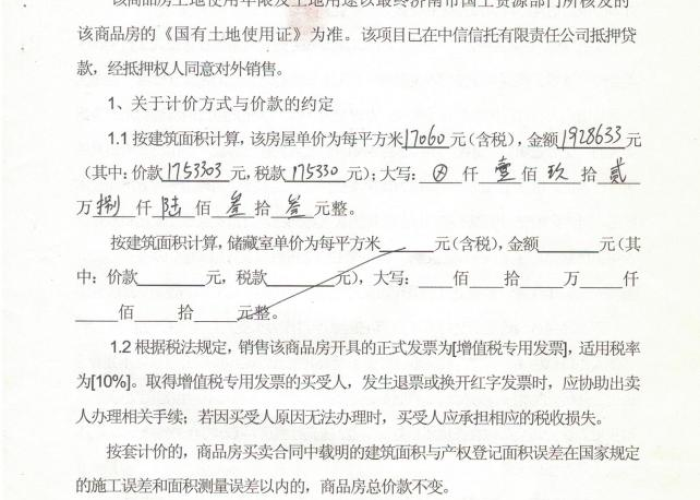 该商品房土地使用年限及土地用途以最终济南市国土资源部门所核发的
该商品房的《国有土地使用证》为准。该项目已在中信信托有限责任公司抵押贷
款，经抵押权人同意对外销售。
1、关于计价方式与价款的约定
1.1 按建筑面积计算，该房屋单价为每平方米17060元(含税)，金额1928633元
(其中：价款1753303元，税款175330元)；大写：⊗仟壹佰玖拾贰
万捌仟陆佰叁拾叁元整。
按建筑面积计算，储藏室单价为每平方米______元(含税)，金额______元(其
中：价款______元，税款______元)，大写：____佰____拾____万____仟
____佰____拾____元整。
1.2 根据税法规定，销售该商品房开具的正式发票为[增值税专用发票]，适用税率
为[10%]。取得增值税专用发票的买受人，发生退票或换开红字发票时，应协助出卖
人办理相关手续；若因买受人原因无法办理时，买受人应承担相应的税收损失。
按套计价的，商品房买卖合同中载明的建筑面积与产权登记面积误差在国家规定
的施工误差和面积测量误差以内的，商品房总价款不变。